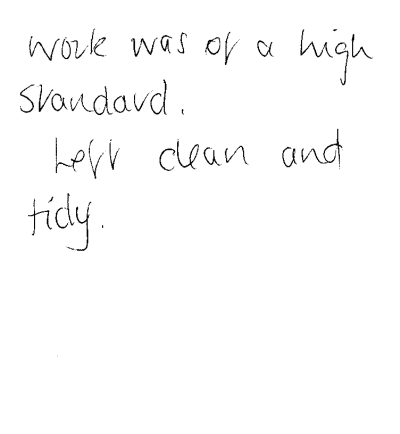 work was of a high
standard.
Left clean and
tidy.